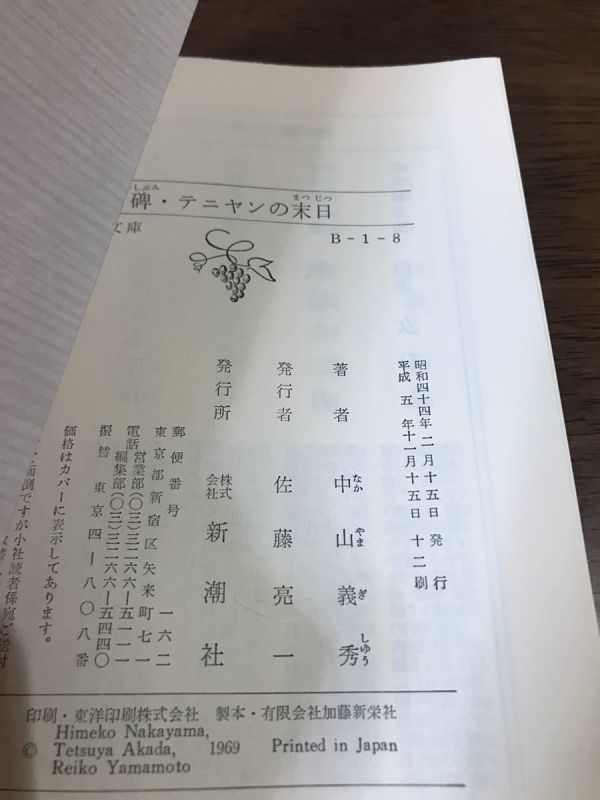 碑・テニヤンの末日
まつじつ
文庫
B-1-8
昭和四十四年二月十五日発行
平成五年十一月十五日十二刷
著者 中山義秀
なかやまぎしゅう
発行者 佐藤亮一
発行所 株式会社 新潮社
郵便番号 一六二
東京都新宿区矢来町七一
電話 営業部(〇三)三二六六―五一一一
編集部(〇三)三二六六―五四四〇
振替 東京四―八〇八番
価格はカバーに表示してあります。
面倒ですが小社読者係宛ご送付
印刷・東洋印刷株式会社 製本・有限会社加藤新栄社
Himeko Nakayama,
© Tetsuya Akada, 1969 Printed in Japan
Reiko Yamamoto